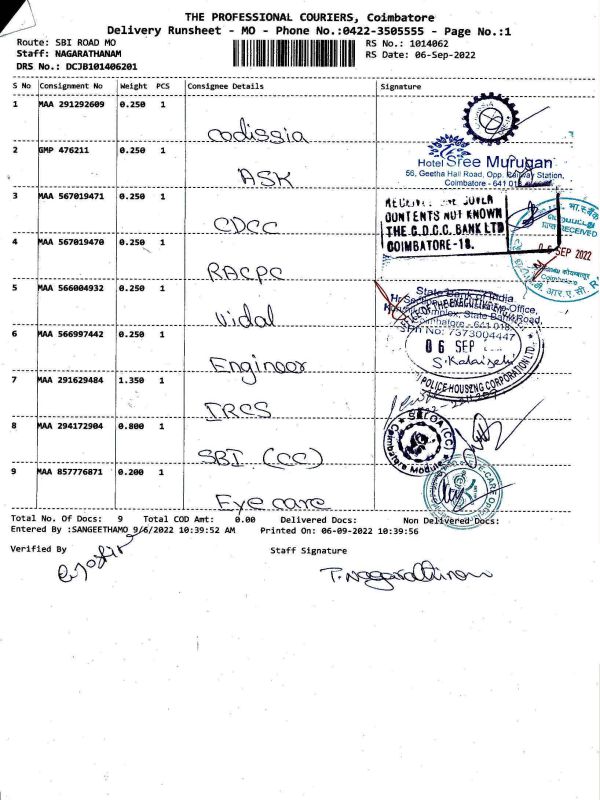 THE PROFESSIONAL COURIERS, Coimbatore
Delivery Runsheet - MO - Phone No.:0422-3505555 - Page No.:1
Route: SBI ROAD MO
RS No.: 1014062
Staff: NAGARATHANAM
RS Date: 06-Sep-2022
DRS No.: DCJB101406201
S No Consignment No Weight PCS Consignee Details Signature
1 MAA 291292609 0.250 1
codissia
2 GMP 476211 0.250 1
Hotel Sree Murugan
56, Geetha Hall Road, Opp. Railway Station,
Coimbatore - 641 018
ASK
3 MAA 567019471 0.250 1
CONTENTS NOT KNOWN
THE C.D.C.C. BANK LTD
COIMBATORE-18.
RECEIVED
CDCC
4 MAA 567019470 0.250 1
06 SEP 2022
RACPC
5 MAA 566004932 0.250 1
State Bank of India
State Bank Road,
Coimbatore - 641 018
Ph No: 7373004447
Vidal
6 MAA 566997442 0.250 1
06 SEP
S. Kalaiselvi
POLICE HOUSING CORPORATION LTD.
Engineer
7 MAA 291629484 1.350 1
IRCS
8 MAA 294172904 0.800 1
Coimbatore Module
SBI (CC)
9 MAA 857776871 0.200 1
Eye care
Total No. Of Docs: 9 Total COD Amt: 0.00 Delivered Docs: Non Delivered Docs:
Entered By :SANGEETHAMO 9/6/2022 10:39:52 AM Printed On: 06-09-2022 10:39:56
Verified By Staff Signature
T. Nagarathinam